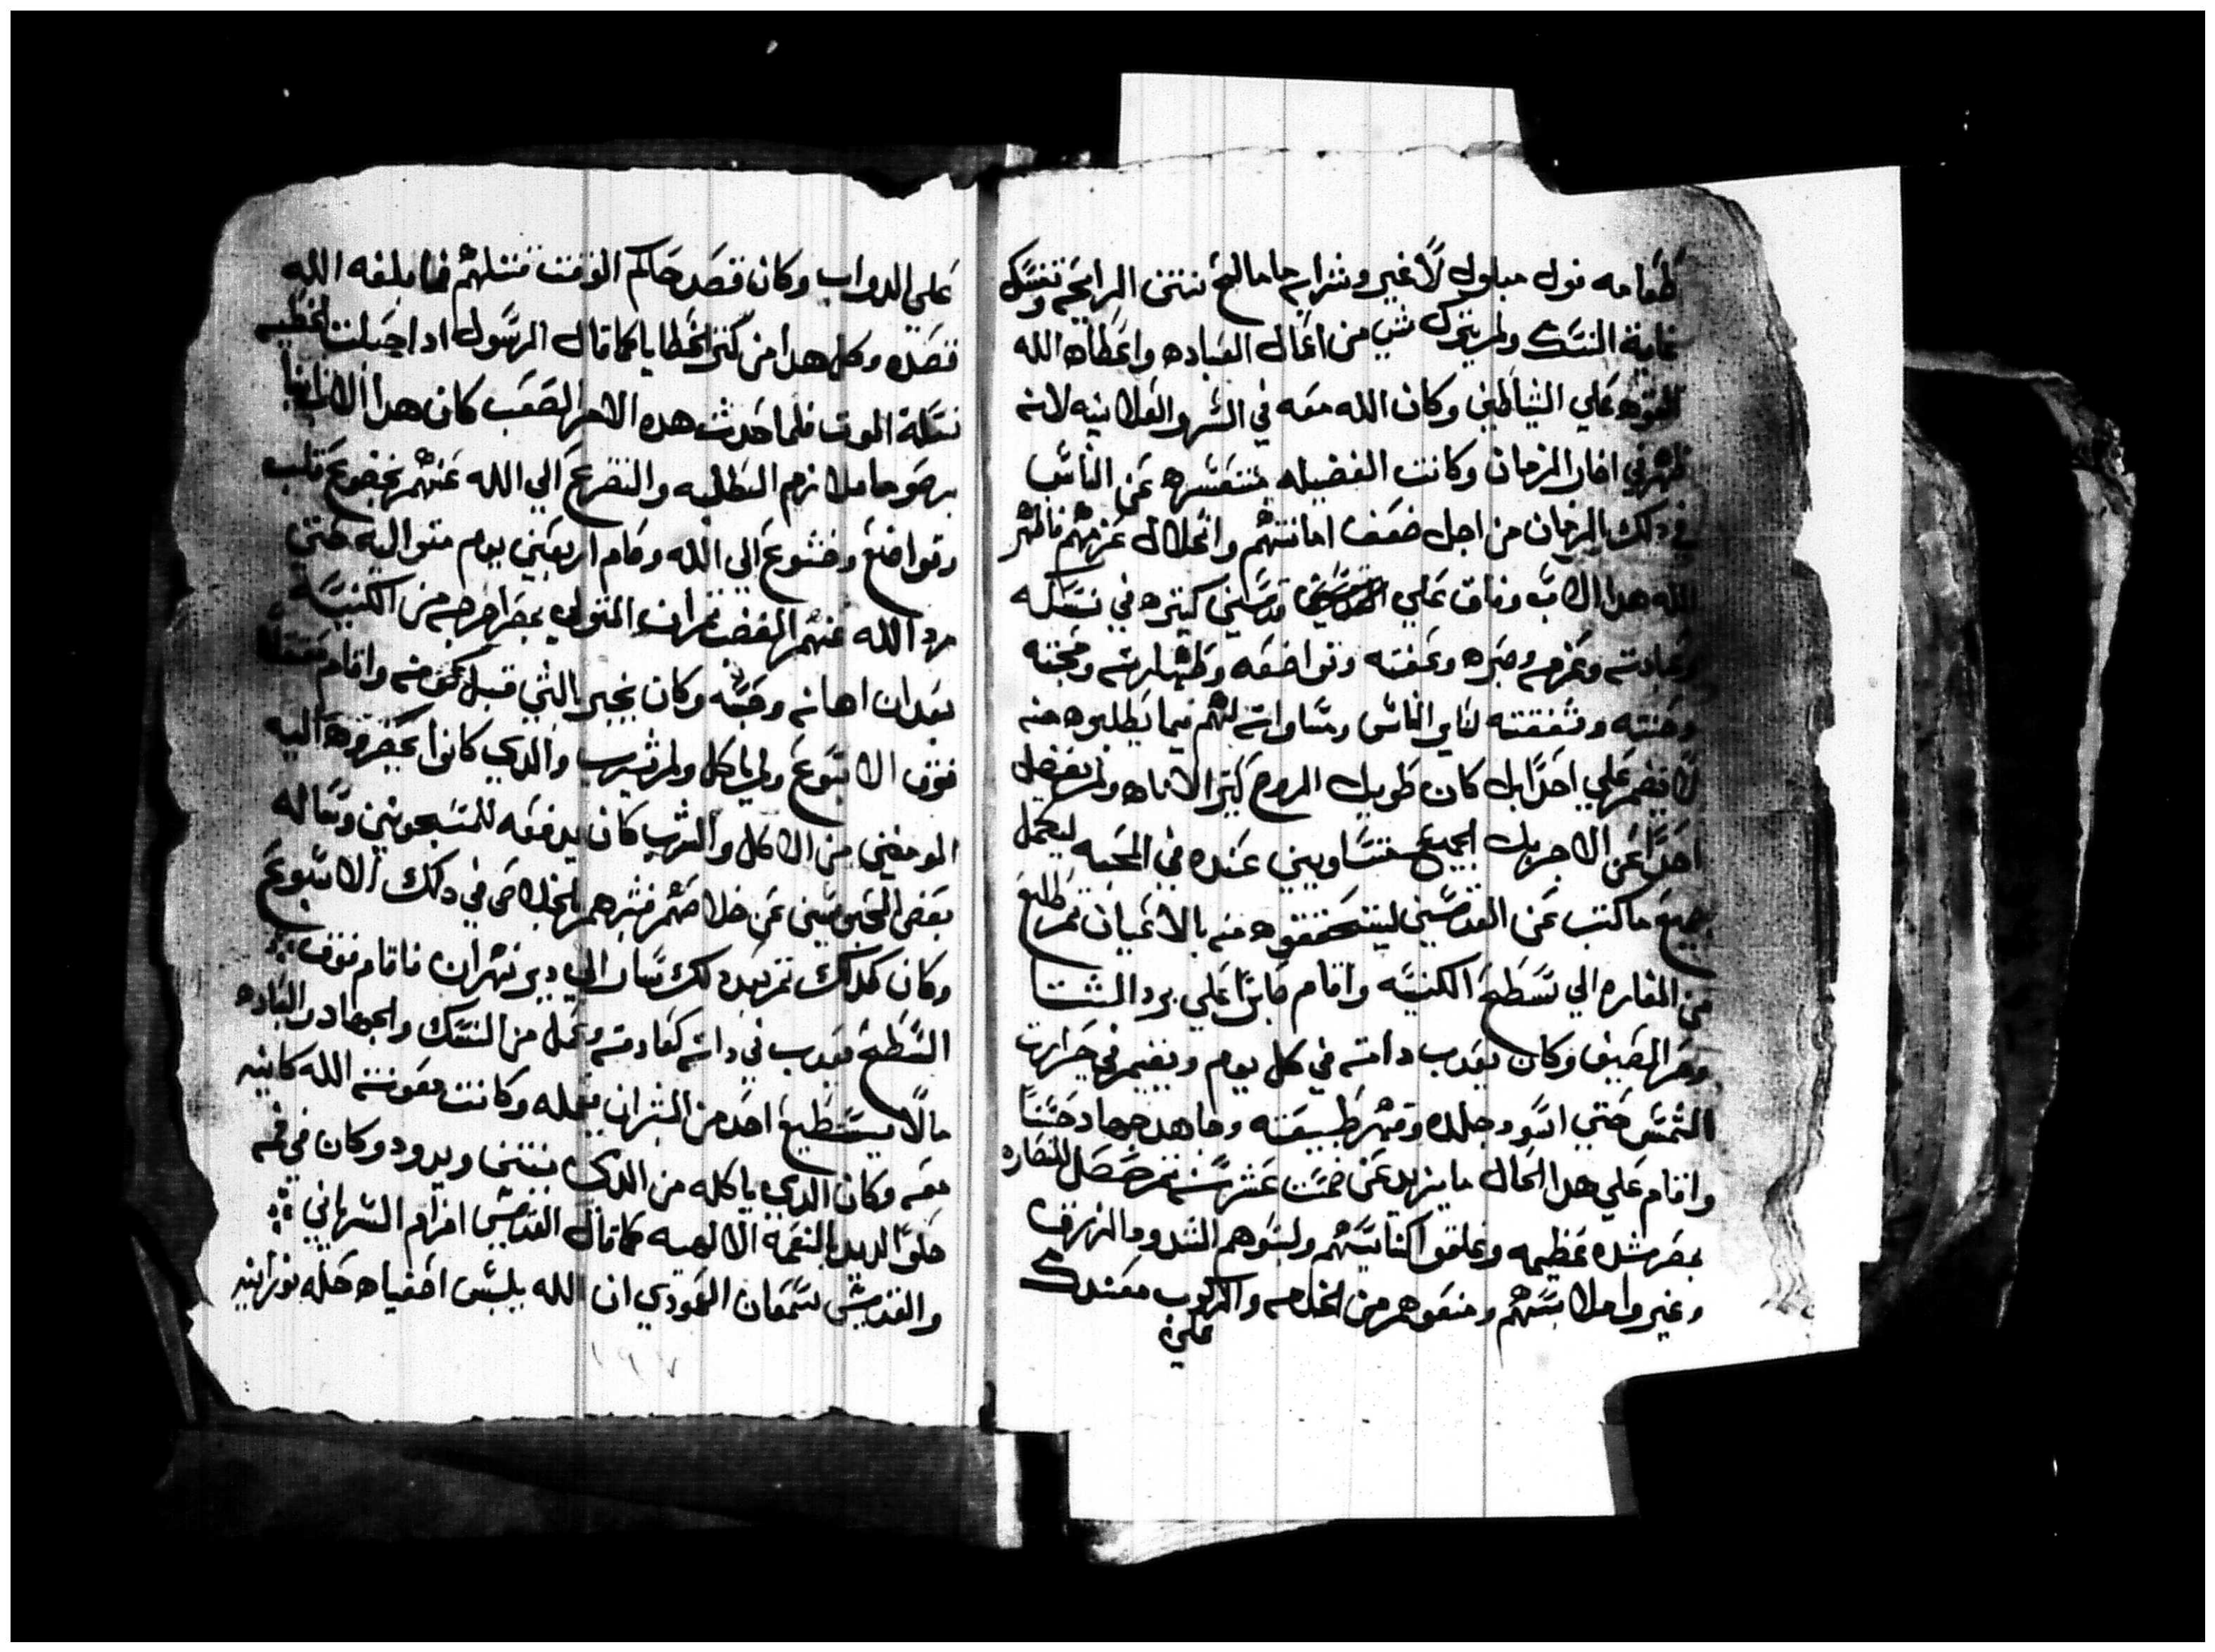 طعامه فول مبلول لا غير وشرابه ما مالح نتن الرايحه وتنسك
غاية النسك ولم يترك شي من اعمال العباده واعطاه الله
القوه علي الشياطين وكان الله معه في السر والعلانيه لانه
ظهر في اخار الزمان وكانت الفضيله متعسره عن الناس
في دلك الزمان من اجل ضعف امانتهم وانحلال عزمهم فاظهر
الله هدا الاب وفاق علي قديسين كتيره في نسكه
وعبادته وعزمه وصبره وعفته وتواضعه وطهارته ومحبته
وحنته وشفقته لساير الناس ومساواته لهم فيما يطلبوه منه
لا يقهر علي احدا بل كان طويل الروح كتير الاناه ولم يفضل
احدا عن الاخر بل الجميع متساويين عنده في المحبه ليكمل
جميع ما كتب عن القديسين ليتحققوه منه بالاعيان تم طلع
من المغاره الي سطح الكنيسه واقام صابرا علي برد الشتا
وحر الصيف وكان يعدب داته في كل يوم ويقيم في حرارت
الشمس حتي اسود جلده وقهر طبيعته وجاهد جهاد حسنا
واقام علي هدا الحال ما يزيد عن خمست عشر سنه تم حصل للنصاره
بمصر شده عظيمه وغلقوا كنايسهم ولبسوهم الشدود الزرق
وغيروا ملابسهم ومنعوهم من الخدامه والركوب معندك
علي
علي الدواب وكان قصد حاكم الوقت قتلهم فما بلغه الله
قصده وكل هدا من كتر الخطايا كما قال الرسول ادا حبلت الخطيه
نسلة الموت فلما حدث هده الامر الصعب كان هدا الاب انبا
برصوما ملازم الطلبه والتضرع الي الله عنهم بخضوع قلب
وتواضع وخشوع الي الله وقام اربعين يوم متواليه حتي
رد الله عنهم الغضب تم ان المتولي بمصر اخرجه من الكنيسه
بعد ان اهانه وحبسه وكان يخبر بالشي قبل كونه واقام
فوق الاسبوع ولم ياكل ولم يشرب والدي كانوا يحضروه اليه
المومنين من الاكل والشرب كان يدفعه للمسجونين وساله
بعض المحبوسين عن خلاصهم فبشرهم بالخلاص في دلك الاسبوع
وكان كدلك تم بعد دلك سار الي دير شهران فاقام فوق
السطح يعدب في داته كعادته وعمل من النسك والجهاد والعباده
ما لا يستطيع احد من البشر ان يعمله وكانت معونة الله كاينه
معه وكان الدي ياكله من الدي نتن ويدود وكان في فمه
حلوا لديد بالنعمة الالهيه كما قال القديس افرام السرياني
والقديس سمعان العمودي ان الله يلبس اصفياه حله نورانيه
١٩٧